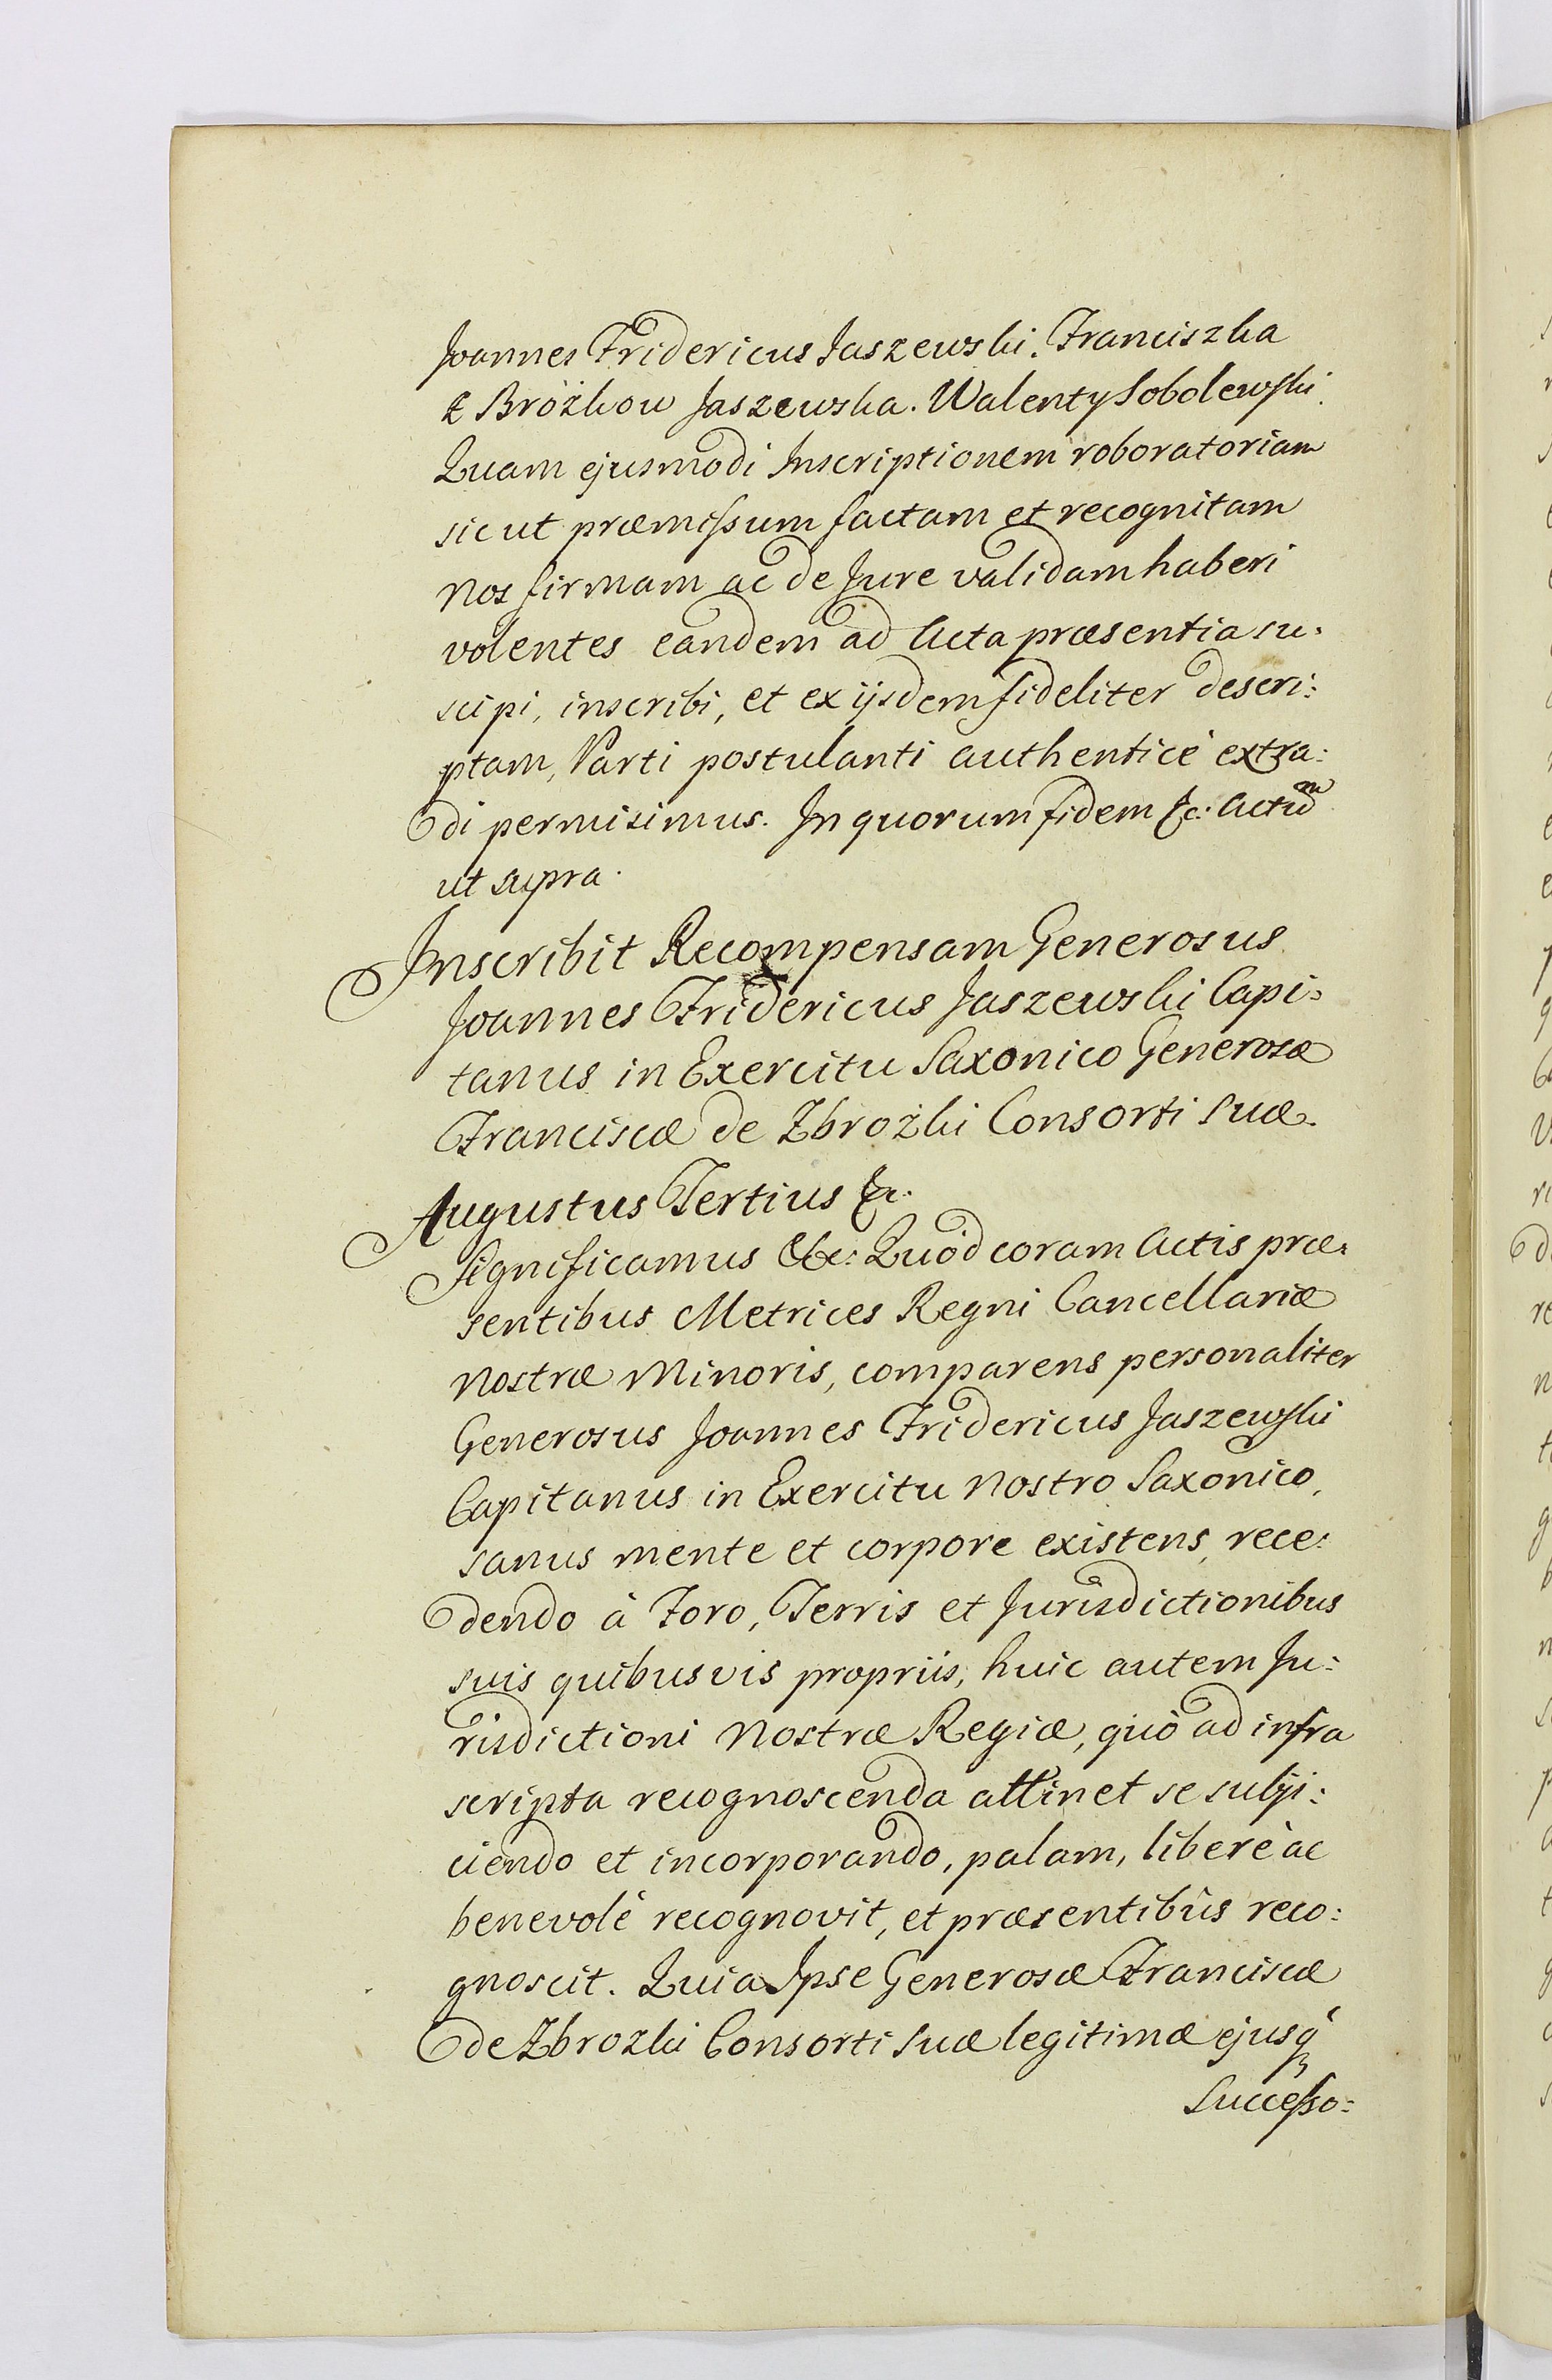 Joannes Fridericus Jaszewski. Franciszka
z Brożkow Jaszewska. Walenty Sobolewski.
Quam ejusmodi Inscriptionem roboratoriam
sic ut præmissum factam et recognitam
Nos firmam ac de Jure validam haberi
volentes eandem ad Acta præsentia su:
scipi, inscribi, et ex ijsdem fideliter descri:
ptam, Parti postulanti authenticè extra:
di permisimus. In quorum fidem &c: Actũ
ut supra.
Inscribit Recompensam Generosus
Joannes Fridericus Jaszewski Capi:
tanus in Exercitu Saxonico Generosæ
Franciscæ de Zbrożki Consorti suæ.
Augustus Tertius &c.
Significamus &c: Quod coram Actis præ:
sentibus Metrices Regni Cancellariæ
Nostræ Minoris, comparens personaliter
Generosus Joannes Fridericus Jaszewski
Capitanus in Exercitu Nostro Saxonico,
sanus mente et corpore existens, rece:
dendo à Foro, Terris et Jurisdictionibus
suis quibusvis propriis, huic autem Ju:
risdictioni Nostræ Regiæ, quò ad infra
scripta recognoscenda attinet se subji:
ciendo et incorporando, palam, liberè ac
benevolè recognovit, et præsentibus reco:
gnoscit. Quia Ipse Generosæ Franciscæ
de Zbrozki Consorti suæ legitimæ ejusq́
Successo: